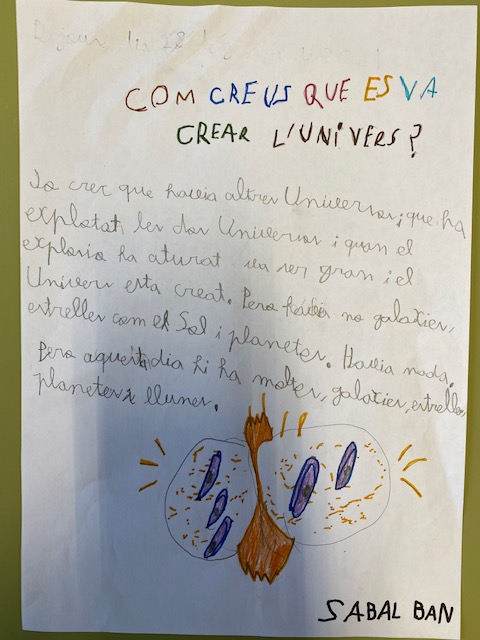 Dijous dia 28
COM CREUS QUE ES VA
CREAR L'UNIVERS?
Jo crec que havia altres Universos; que ha
explotat les dos Universos i quan el
explosio ha aturat va ser gran i el
Univers esta creat. Pero havia no galaxies,
estrelles com el Sol i planetes. Havia nada.
Pero aquest dia hi ha moltes, galaxies, estrelles,
planetes i llunes.
SABAL BAN